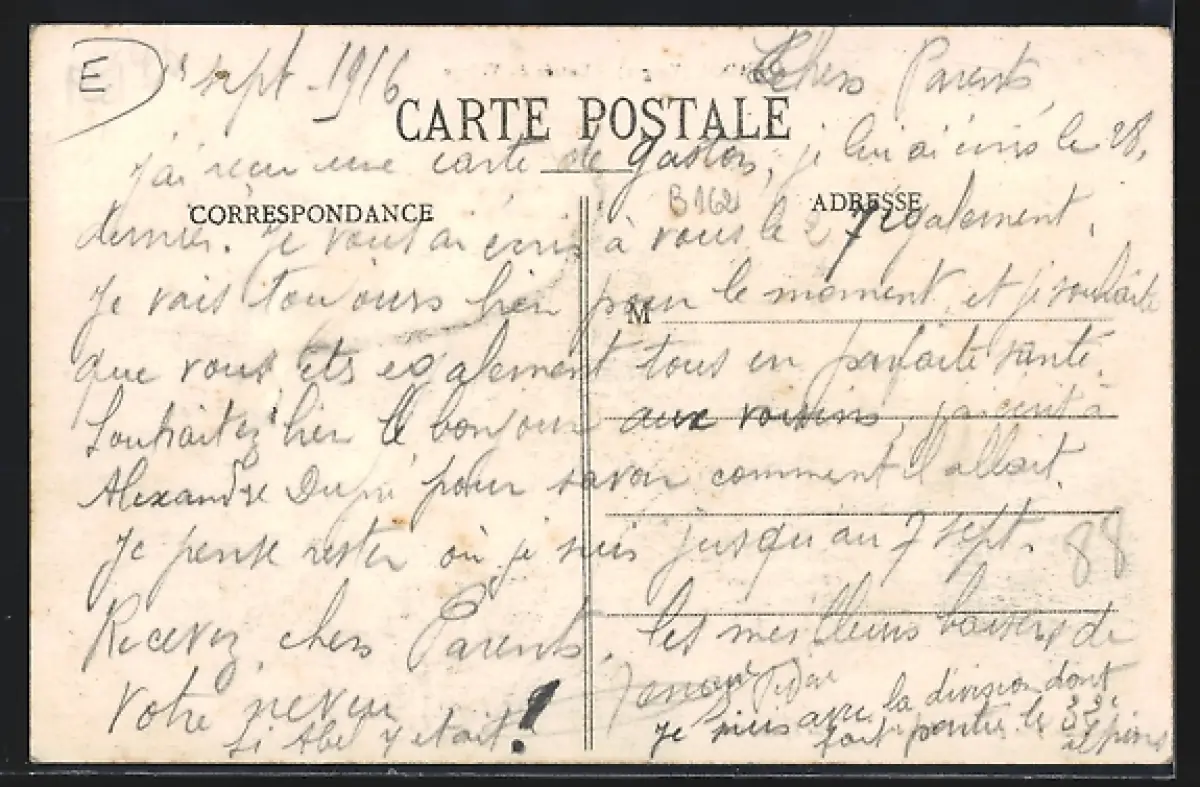 E 1 sept - 1916 Chers Parents,
CARTE POSTALE
j'ai reçu une carte de Gaston, je lui ai écris le 28,
B162
CORRESPONDANCE
ADRESSE
dernier. Je vous ai écris à vous le 27 également.
Je vais toujours bien pour le moment, et je souhaite
M
que vous êts également tous en parfaite santé.
Souhaitez bien le bonjour aux voisins, j'ai écrit à
Alexandre Dupré pour savoir comment il allait.
Je pense rester où je suis jusqu'au 7 sept.
88
Recevez, chers Parents, les meilleurs baisers de
Votre neveu
Je suis avec la division dont
fait partie le 33e alpins
Si Abel y était!